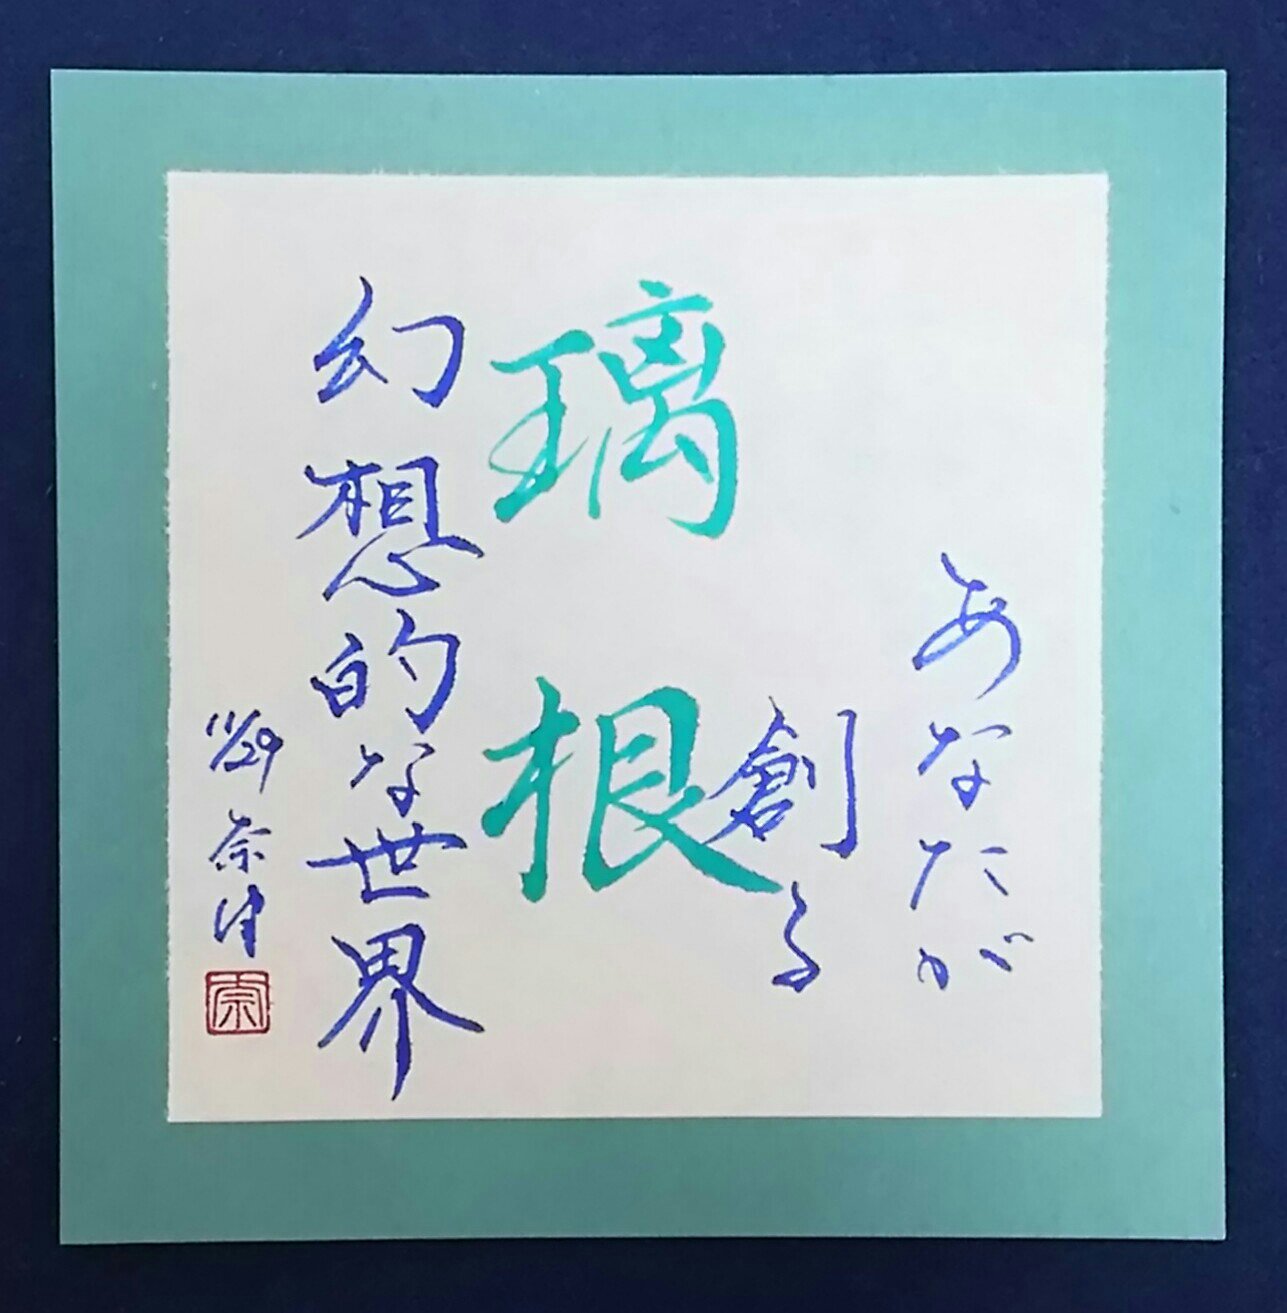 あなたが
創る
璃根
幻想的な世界
11/29 奈津
奈